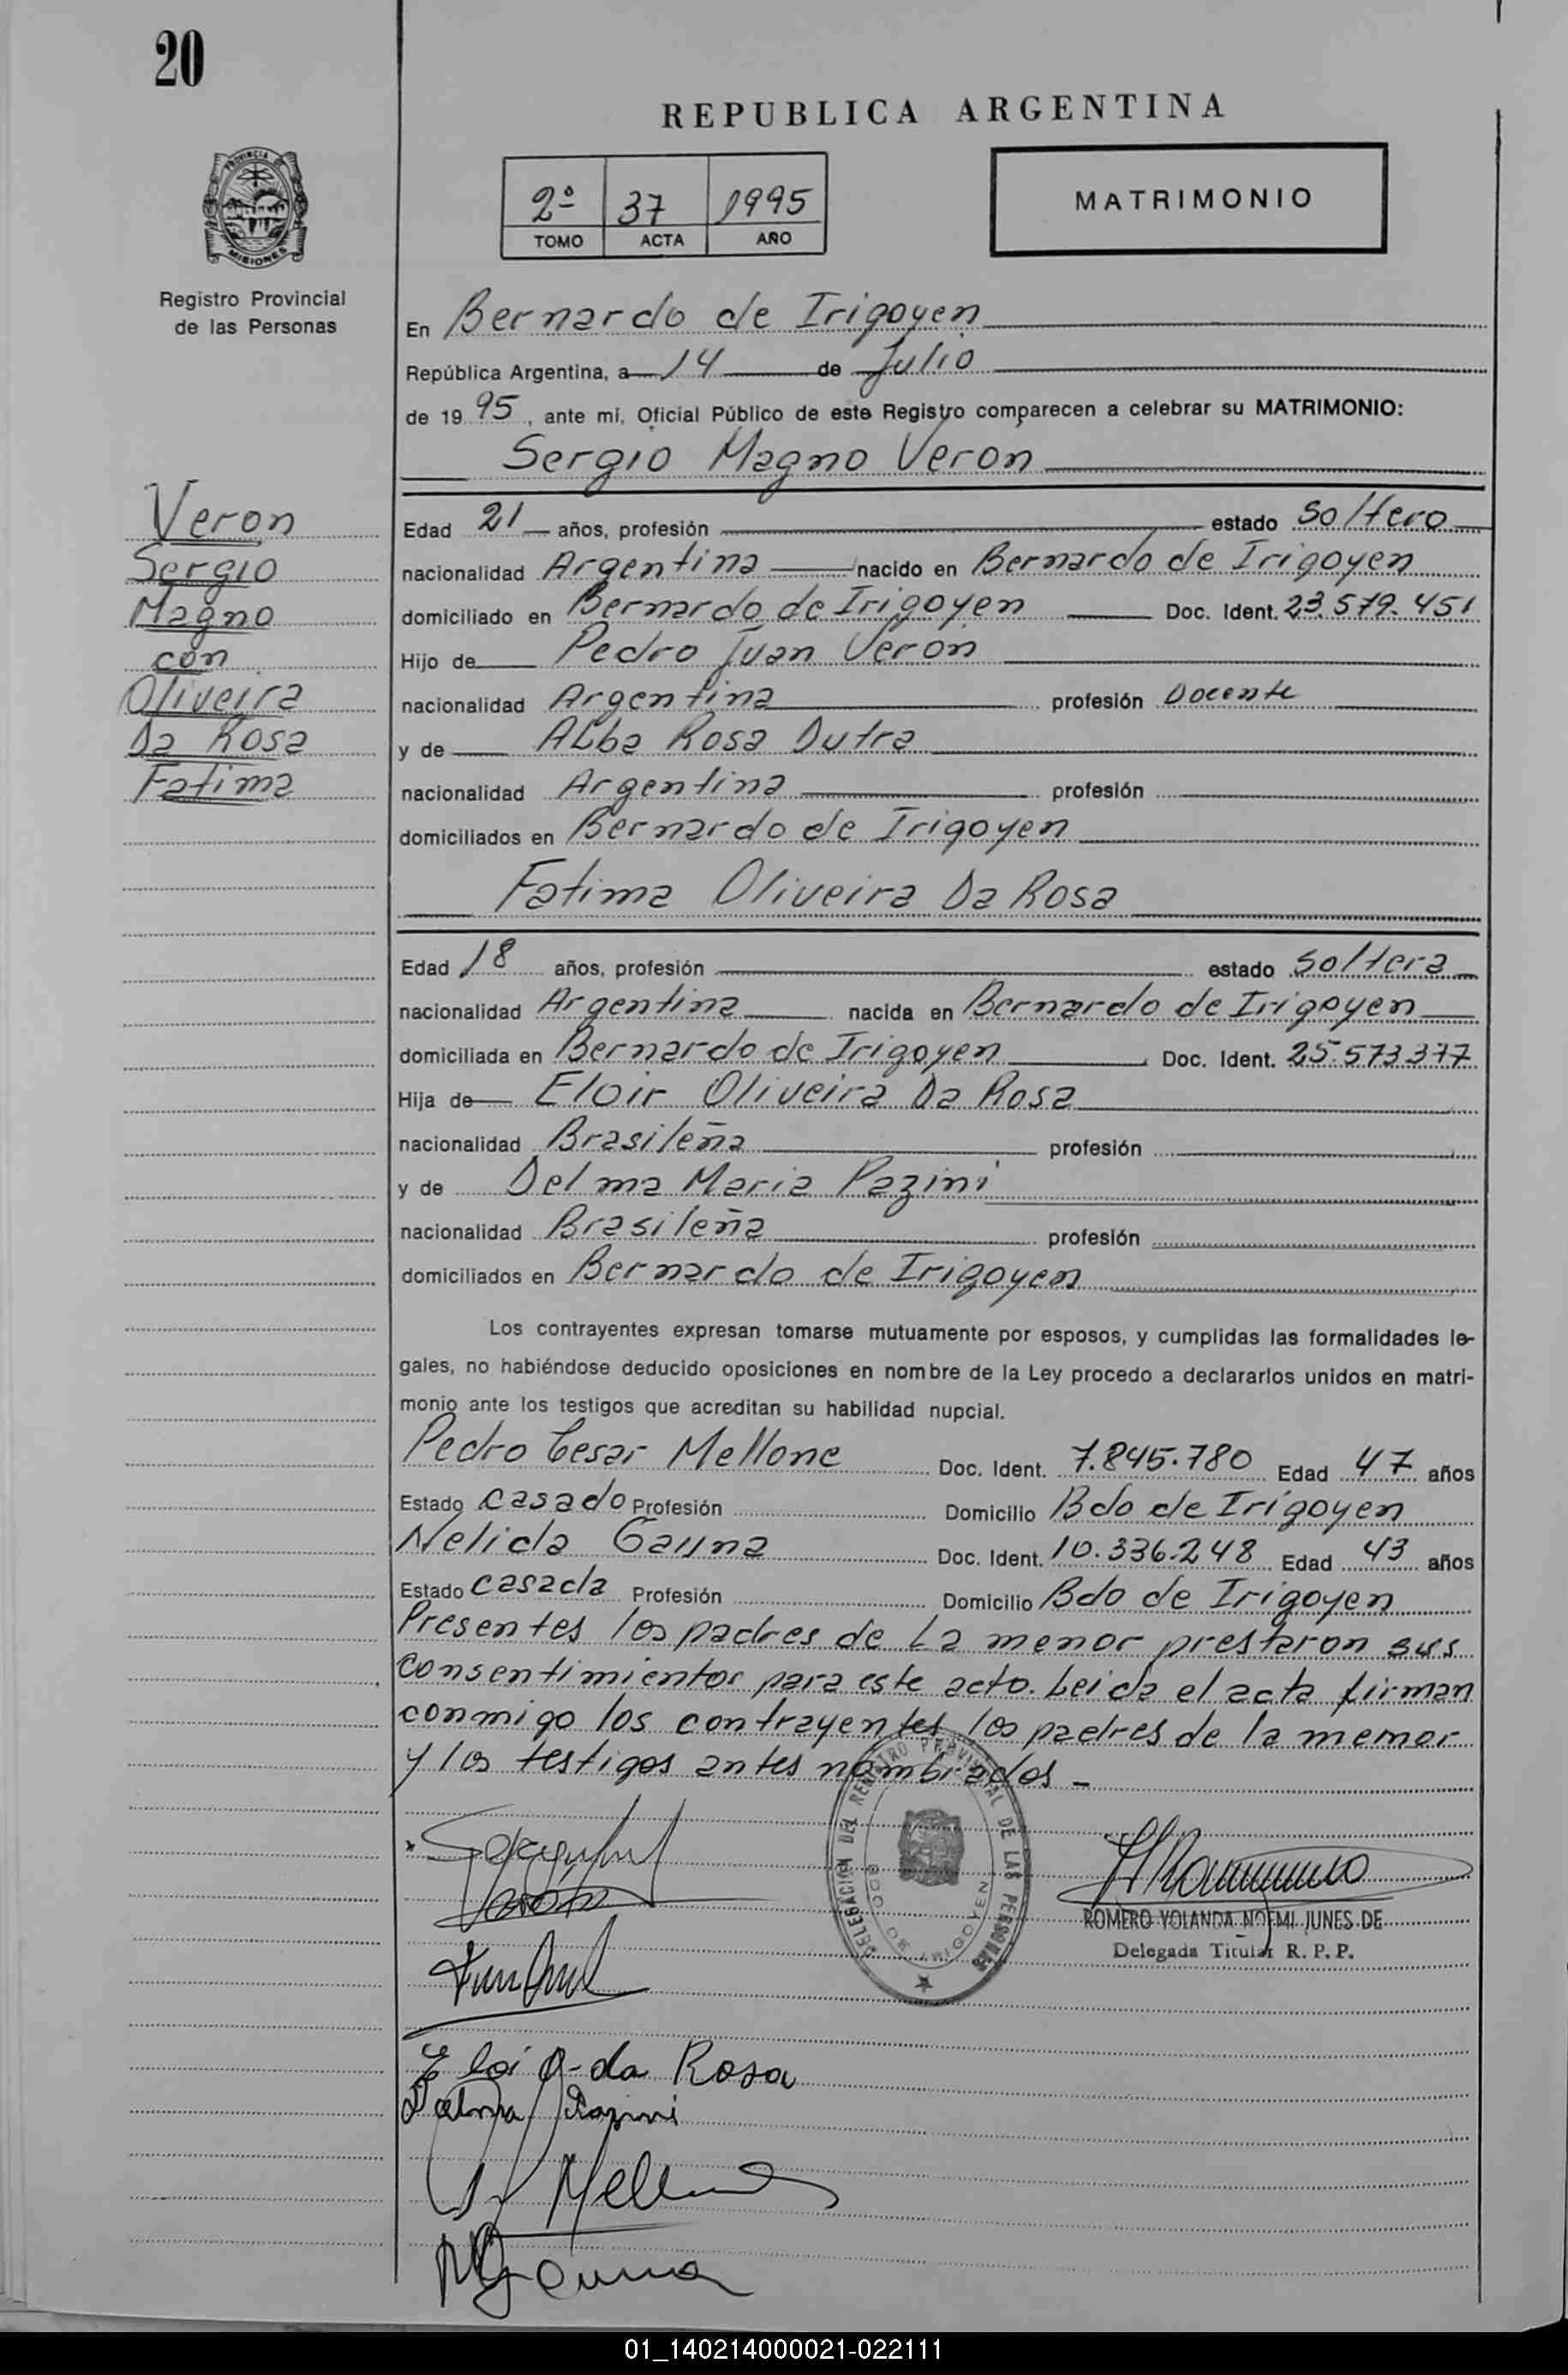 20
REPUBLICA ARGENTINA
PROVINCIA DE
MISIONES
2º 37 1995
TOMO ACTA AÑO
MATRIMONIO
Registro Provincial
de las Personas
En Bernardo de Irigoyen
República Argentina, a 14 de Julio
de 19 95, ante mí, Oficial Público de este Registro comparecen a celebrar su MATRIMONIO:
Sergio Magno Veron
Veron
Sergio
Magno
con
Oliveira
Da Rosa
Fatima
Edad 21 años, profesión estado soltero
nacionalidad Argentina nacido en Bernardo de Irigoyen
domiciliado en Bernardo de Irigoyen Doc. Ident. 23.579.451
Hijo de Pedro Juan Verón
nacionalidad Argentina profesión Docente
y de Alba Rosa Dutra
nacionalidad Argentina profesión
domiciliados en Bernardo de Irigoyen
Fatima Oliveira Da Rosa
Edad 18 años, profesión estado soltera
nacionalidad Argentina nacida en Bernardo de Irigoyen
domiciliada en Bernardo de Irigoyen Doc. Ident. 25.573.377
Hija de Eloir Oliveira Da Rosa
nacionalidad Brasileña profesión
y de Delma Maria Pazini
nacionalidad Brasileña profesión
domiciliados en Bernardo de Irigoyen
Los contrayentes expresan tomarse mutuamente por esposos, y cumplidas las formalidades le-
gales, no habiéndose deducido oposiciones en nombre de la Ley procedo a declararlos unidos en matri-
monio ante los testigos que acreditan su habilidad nupcial.
Pedro Cesar Mellone Doc. Ident. 7.845.780 Edad 47 años
Estado casado Profesión Domicilio Bdo de Irigoyen
Nelida Gauna Doc. Ident. 10.336.248 Edad 43 años
Estado casada Profesión Domicilio Bdo de Irigoyen
Presentes los padres de La menor prestaron sus
consentimientos para este acto. Leida el acta firman
conmigo los contrayentes los padres de la menor
y los testigos antes nombrados -
DELEGACION DEL REGISTRO PROVINCIAL DE LAS PERSONAS
BDO DE IRIGOYEN
ROMERO YOLANDA NOEMI JUNES DE
Delegada Titular R. P. P.
Eloi O-da Rosa
Delma Pazini
Mellone
NGauna
01_140214000021-022111